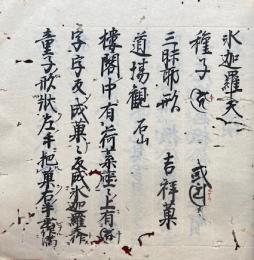 氷迦羅天
種子 或
三昧耶形 吉祥菓
道場観
樓閣中有荷葉座上有
字字変成菓々変成氷迦羅天作
童子形状左手把菓右手